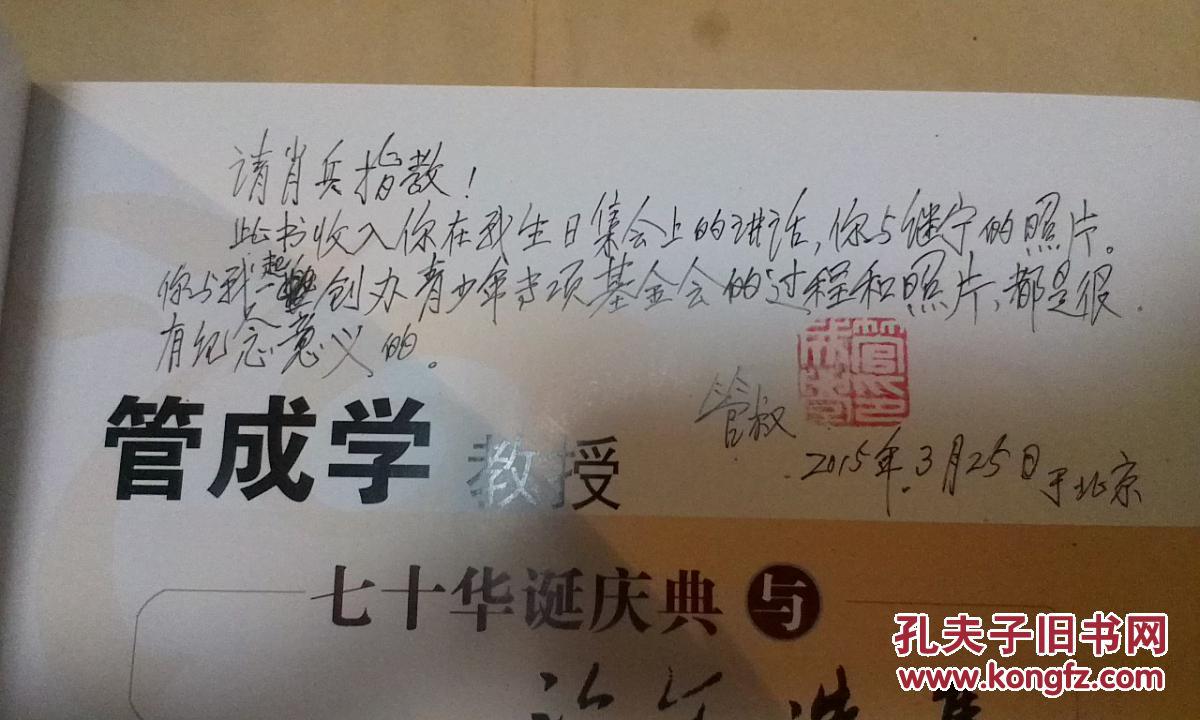 请肖兵指教!
此书收入你在我生日集会上的讲话,你与继宁的照片。
你与我一起创办青少年专项基金会的过程和照片,都是很
有纪念意义的。
管叔
2015年3月25日于北京
管成学 教授
七十华诞庆典与
孔夫子旧书网
www.kongfz.com